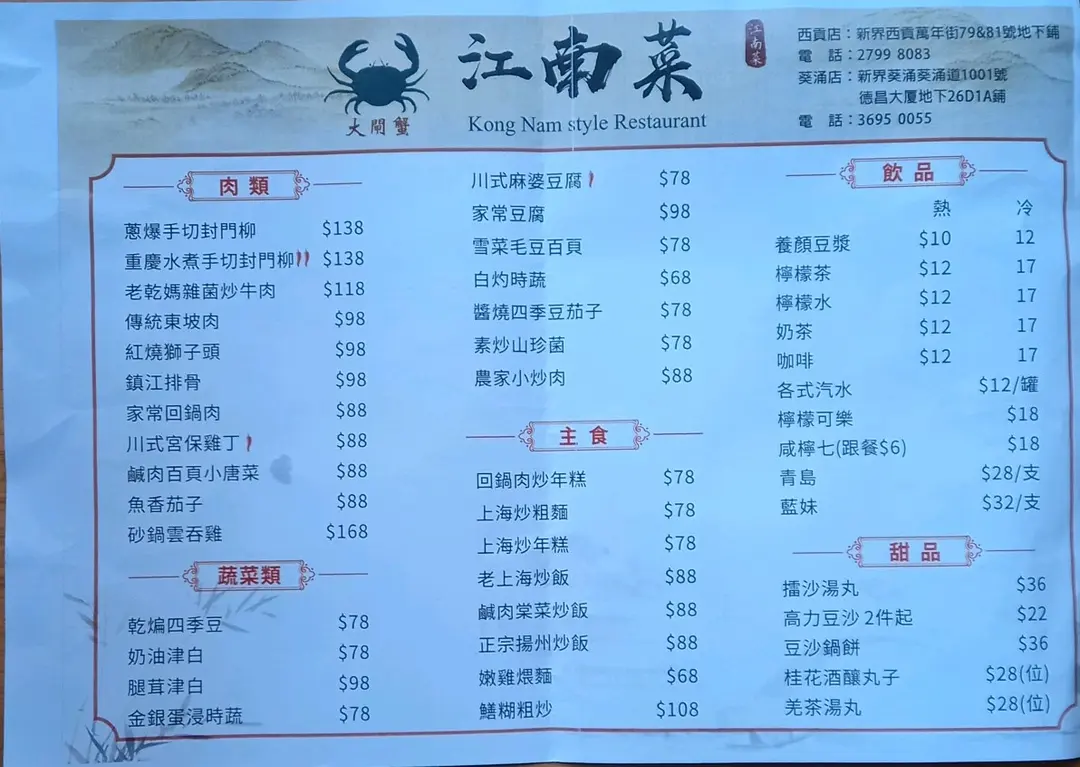 大閘蟹
江南菜
Kong Nam style Restaurant
江南菜
西貢店：新界西貢萬年街79&81號地下鋪
電　話：2799 8083
葵涌店：新界葵涌葵涌道1001號
德昌大廈地下26D1A鋪
電　話：3695 0055
肉類
蔥爆手切封門柳 $138
重慶水煮手切封門柳 $138
老乾媽雜菌炒牛肉 $118
傳統東坡肉 $98
紅燒獅子頭 $98
鎮江排骨 $98
家常回鍋肉 $88
川式宮保雞丁 $88
鹹肉百頁小唐菜 $88
魚香茄子 $88
砂鍋雲吞雞 $168
蔬菜類
乾煸四季豆 $78
奶油津白 $78
腿茸津白 $98
金銀蛋浸時蔬 $78
川式麻婆豆腐 $78
家常豆腐 $98
雪菜毛豆百頁 $78
白灼時蔬 $68
醬燒四季豆茄子 $78
素炒山珍菌 $78
農家小炒肉 $88
主食
回鍋肉炒年糕 $78
上海炒粗麵 $78
上海炒年糕 $78
老上海炒飯 $88
鹹肉棠菜炒飯 $88
正宗揚州炒飯 $88
嫩雞煨麵 $68
鱔糊粗炒 $108
飲品
熱 冷
養顏豆漿 $10 12
檸檬茶 $12 17
檸檬水 $12 17
奶茶 $12 17
咖啡 $12 17
各式汽水 $12/罐
檸檬可樂 $18
咸檸七(跟餐$6) $18
青島 $28/支
藍妹 $32/支
甜品
擂沙湯丸 $36
高力豆沙 2件起 $22
豆沙鍋餅 $36
桂花酒釀丸子 $28(位)
羌茶湯丸 $28(位)